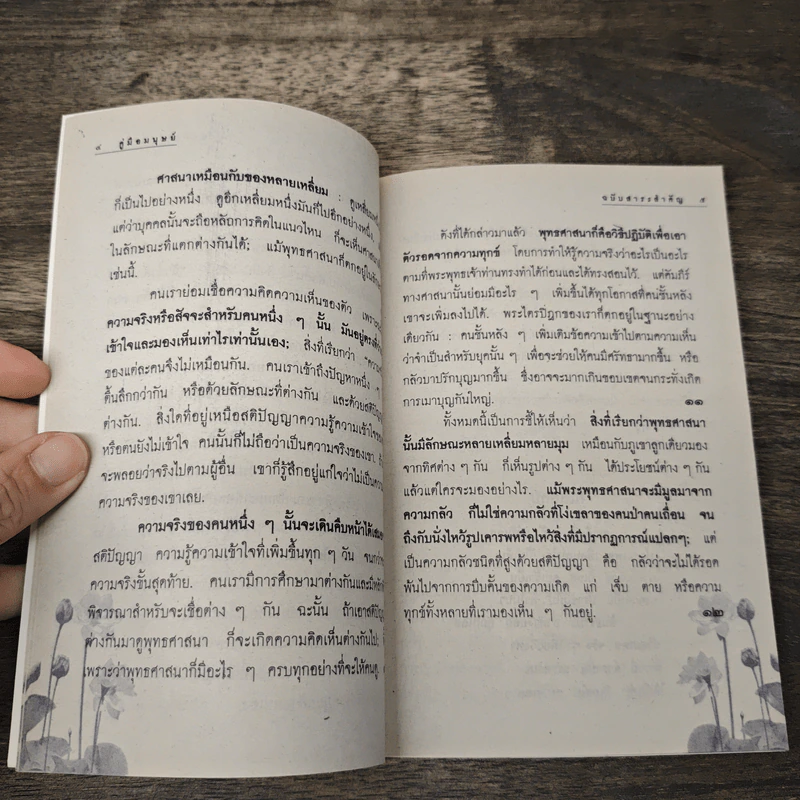 ๘ คู่มือมนุษย์
ศาสนาเหมือนกับของหลายเหลี่ยม : ดูเหลี่ยมหนึ่ง
ก็เป็นไปอย่างหนึ่ง ดูอีกเหลี่ยมหนึ่งมันก็ไปอีกอย่างหนึ่ง
แต่ว่าบุคคลนั้นจะถือหลักการคิดในแนวไหน ก็จะเห็นศาสนา
ในลักษณะที่แตกต่างกันได้; แม้พุทธศาสนาก็ตกอยู่ใน
เช่นนี้.
คนเราย่อมเชื่อความคิดความเห็นของตัว เพราะ
ความจริงหรือสัจจะสำหรับคนหนึ่ง ๆ นั้น มันอยู่ตรงที่
เข้าใจและมองเห็นเท่าไรเท่านั้นเอง; สิ่งที่เรียกว่า
ของแต่ละคนจึงไม่เหมือนกัน. คนเราเข้าถึงปัญหาหนึ่ง ๆ
ตื้นลึกกว่ากัน หรือด้วยลักษณะที่ต่างกัน และด้วยสติปัญญา
ต่างกัน. สิ่งใดที่อยู่เหนือสติปัญญาความรู้ความเข้าใจของ
หรือตนยังไม่เข้าใจ คนนั้นก็ไม่ถือว่าเป็นความจริงของเขา.
จะพลอยว่าจริงไปตามผู้อื่น เขาก็รู้สึกอยู่แก่ใจว่าไม่เป็น
ความจริงของเขาเลย.
ความจริงของคนหนึ่ง ๆ นั้นจะเดินคืบหน้าได้เสมอ
สติปัญญา ความรู้ความเข้าใจที่เพิ่มขึ้นทุก ๆ วัน จนกว่า
ความจริงขั้นสุดท้าย. คนเรามีการศึกษามาต่างกันและมีหลัก
พิจารณาสำหรับจะเชื่อต่าง ๆ กัน ฉะนั้น ถ้าเอาสติปัญญา
ต่างกันมาดูพุทธศาสนา ก็จะเกิดความคิดเห็นต่างกันไป;
เพราะว่าพุทธศาสนาก็มีอะไร ๆ ครบทุกอย่างที่จะให้คนดู.
ฉบับสาระสำคัญ ๙
ดังที่ได้กล่าวมาแล้ว พุทธศาสนาก็คือวิธีปฏิบัติเพื่อเอา
ตัวรอดจากความทุกข์ โดยการทำให้รู้ความจริงว่าอะไรเป็นอะไร
ตามที่พระพุทธเจ้าท่านทรงทำได้ก่อนและได้ทรงสอนไว้. แต่คัมภีร์
ทางศาสนานั้นย่อมมีอะไร ๆ เพิ่มขึ้นได้ทุกโอกาสที่คนชั้นหลัง
เขาจะเพิ่มลงไปได้. พระไตรปิฎกของเราก็ตกอยู่ในฐานะอย่าง
เดียวกัน : คนชั้นหลัง ๆ เพิ่มเติมข้อความเข้าไปตามความเห็น
ว่าจำเป็นสำหรับยุคนั้น ๆ เพื่อจะช่วยให้คนมีศรัทธามากขึ้น หรือ
กลัวบาปรักบุญมากขึ้น ซึ่งอาจจะมากเกินขอบเขตจนกระทั่งเกิด
การเมาบุญกันใหญ่. ๑๑
ทั้งหมดนี้เป็นการชี้ให้เห็นว่า สิ่งที่เรียกว่าพุทธศาสนา
นั้นมีลักษณะหลายเหลี่ยมหลายมุม เหมือนกับภูเขาลูกเดียวมอง
จากทิศต่าง ๆ กัน ก็เห็นรูปต่าง ๆ กัน ได้ประโยชน์ต่าง ๆ กัน
แล้วแต่ใครจะมองอย่างไร. แม้พระพุทธศาสนาจะมีมูลมาจาก
ความกลัว ก็ไม่ใช่ความกลัวที่โง่เขลาของคนป่าคนเถื่อน จน
ถึงกับนั่งไหว้รูปเคารพหรือไหว้สิ่งที่มีปรากฏการณ์แปลกๆ; แต่
เป็นความกลัวชนิดที่สูงด้วยสติปัญญา คือ กลัวว่าจะไม่ได้รอด
พ้นไปจากการบีบคั้นของความเกิด แก่ เจ็บ ตาย หรือความ
ทุกข์ทั้งหลายที่เรามองเห็น ๆ กันอยู่. ๑๒